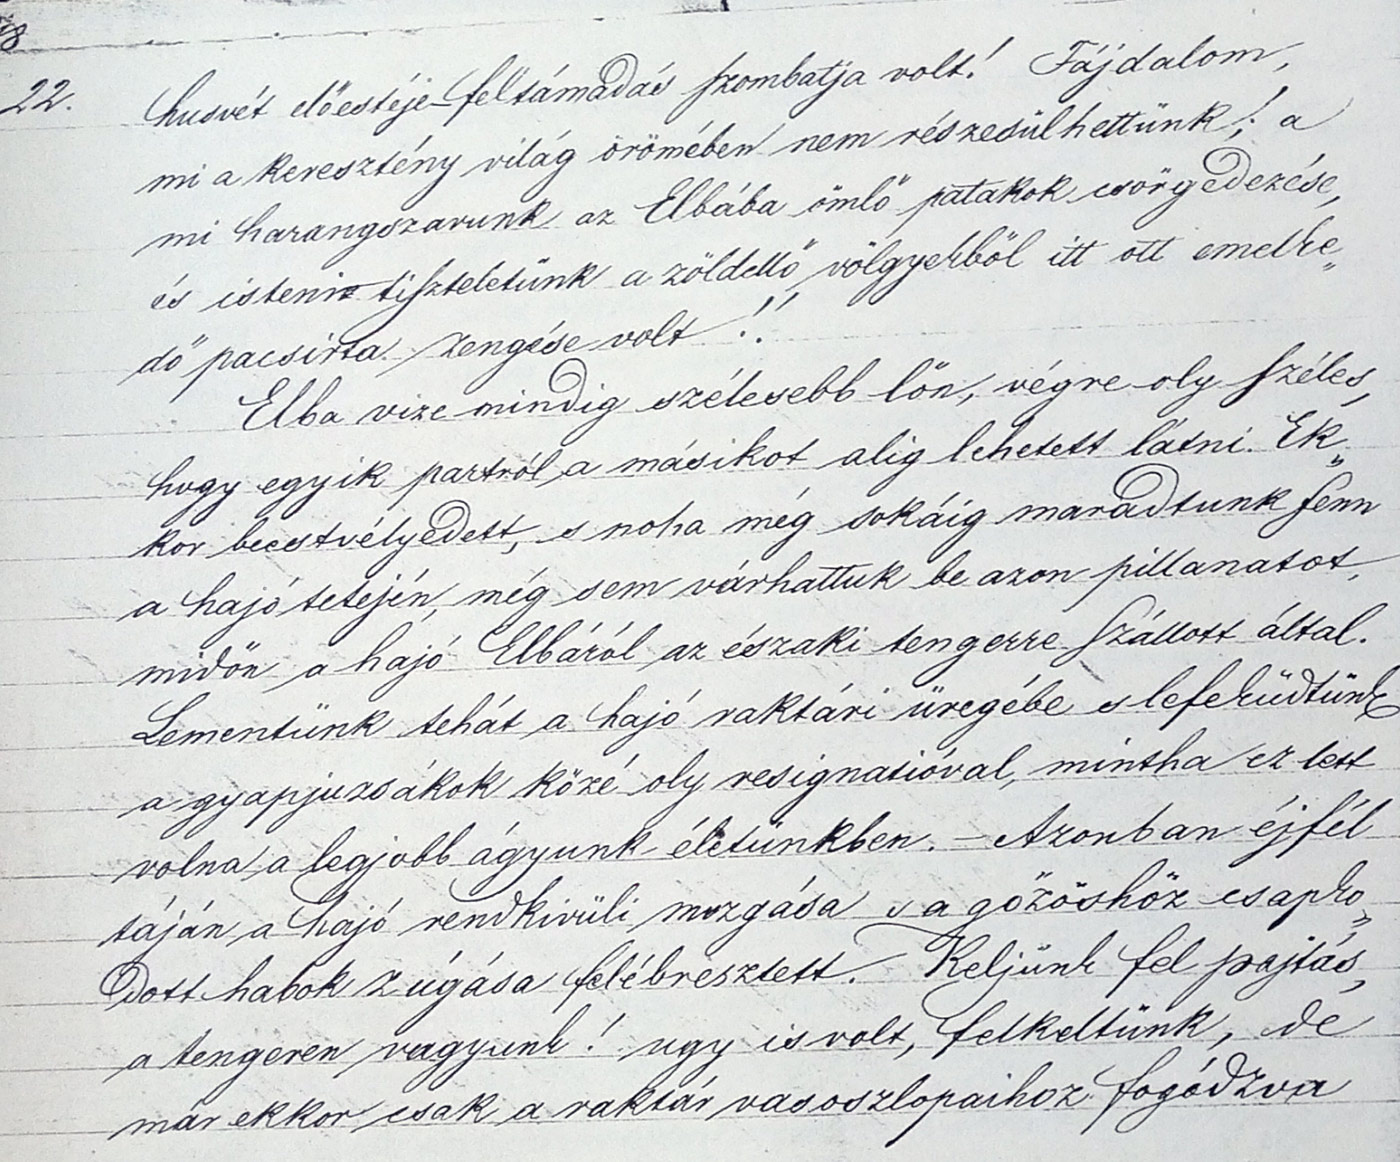 22.
husvét előestéje – feltámadás szombatja volt! Fájdalom,
mi a keresztény világ örömében nem részesülhettünk! a
mi harangszavunk az Elbába ömlő patakok csörgedezése,
és isteni tiszteletünk a zöldellő völgyekből itt ott emelke„
dő pacsirta zengése volt!!
Elba vize mindig szélesebb lön, végre oly széles,
hogy egyik partról a másikot alig lehetett látni. Ek„
kor beestvélyedett, s noha még sokáig maradtunk fenn
a hajó tetején, még sem várhattuk be azon pillanatot,
midőn a hajó Elbáról az északi tengerre szállott által.
Lementünk tehát a hajó raktári üregébe s lefeküdtünk
a gyapjuzsákok közé oly resignatióval, mintha ez lett
volna a legjobb ágyunk életünkben. – Azonban éjfél
táján a hajó rendkivüli mozgása s a gőzöshöz csapko„
dott habok zúgása felébresztett. Keljünk fel pajtás,
a tengeren vagyunk! ugy is volt, felkeltünk, de
már ekkor csak a raktár vasoszlopaihoz fogódzva